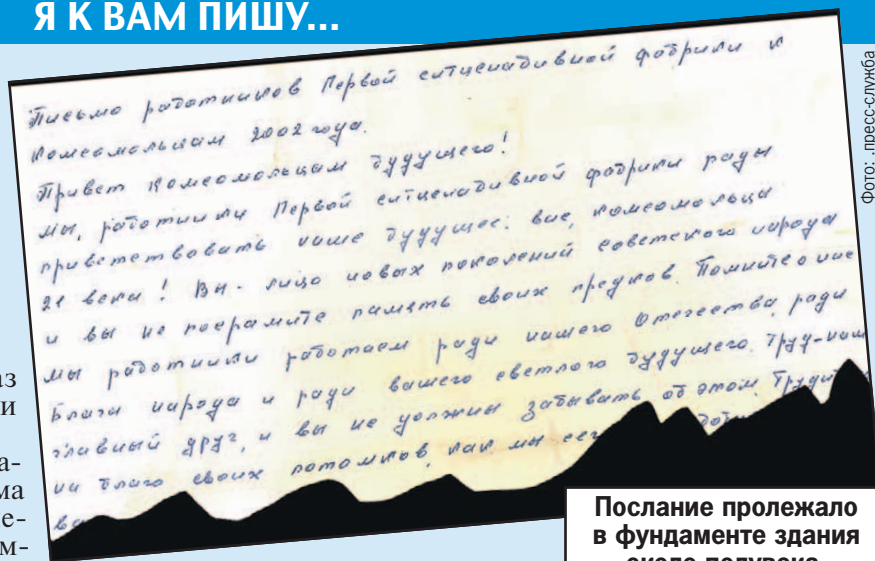 Я К ВАМ ПИШУ...
Письмо работников Первой ситценабивной фабрики к
комсомольцам 2002 года.
Привет комсомольцам будущего!
Мы, работники Первой ситценабивной фабрики рады
приветствовать наше будущее: вас, комсомольцы
21 века! Вы - лицо новых поколений советского народа
и вы не посрамите память своих предков. Помните о нас
Мы работники работаем ради нашего Отечества, ради
блага народа и ради вашего светлого будущего. Труд-наш
главный друг, и вы не должны забывать об этом.
на благо своих потомков, как мы
Фото: .пресс-служба
аз
и
а-
ма
е-
м-
Послание пролежало
в фундаменте здания
около полувека